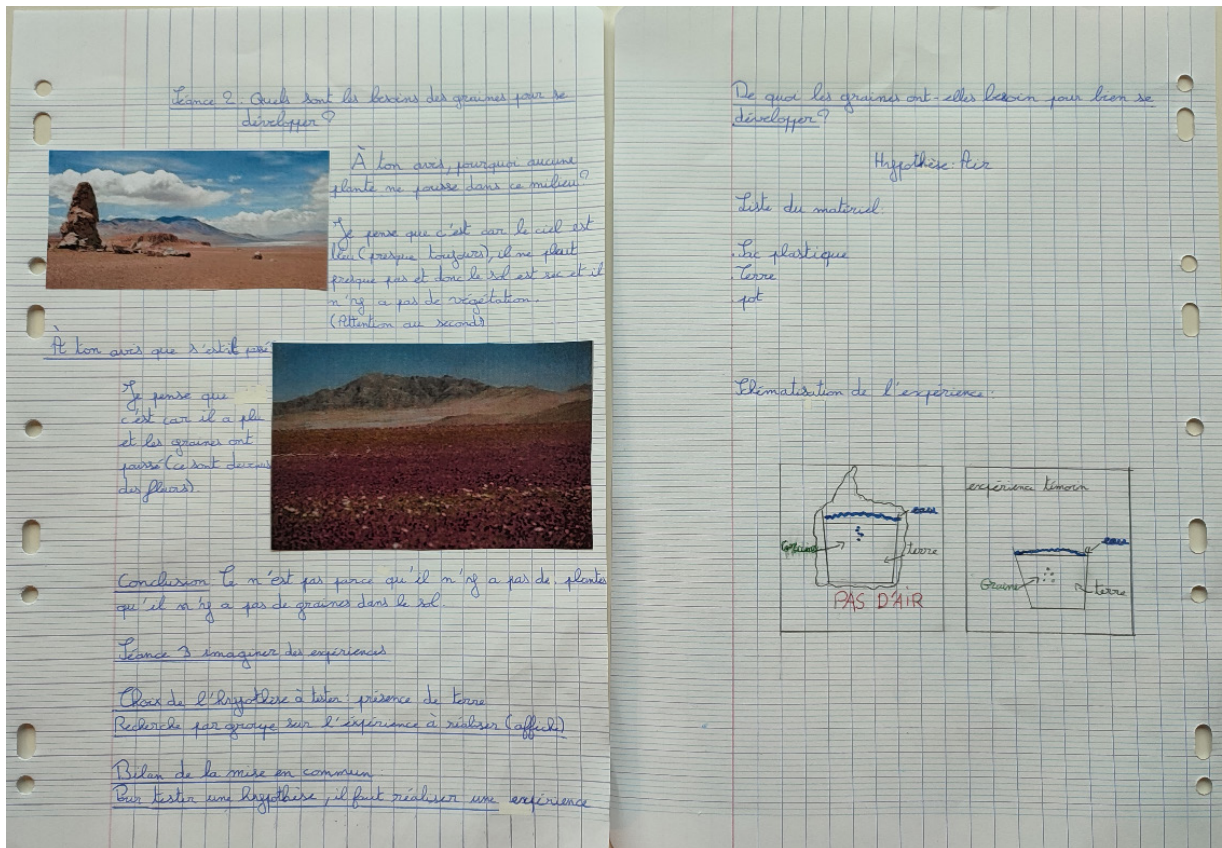 Séance 2. Quels sont les besoins des graines pour se
développer?
À ton avis, pourquoi aucune
plante ne pousse dans ce milieu?
Je pense que c'est car le ciel est
bleu (presque toujours), il ne pleut
presque pas et donc le sol est sec et il
n'y a pas de végétation.
(Attention au second)
À ton avis que s'est-il passé
Je pense que
c'est car il a plu
et les graines ont
poussé (ce sont
des fleurs).
Conclusion Ce n'est pas parce qu'il n'y a pas de plantes
qu'il n'y a pas de graines dans le sol.
Séance 3 imaginer des expériences
Choix de l'hypothèse à tester : présence de terre
Recherche par groupe sur l'expérience à réaliser (affiche)
Bilan de la mise en commun
Pour tester une hypothèse, il faut réaliser une expérience
De quoi les graines ont-elles besoin pour bien se
développer?
Hypothèse : Air
Liste du matériel.
. Sac plastique
. Terre
. pot
Schématisation de l'expérience :
eau
Graine
terre
PAS D'AIR
expérience témoin
eau
Graine
terre